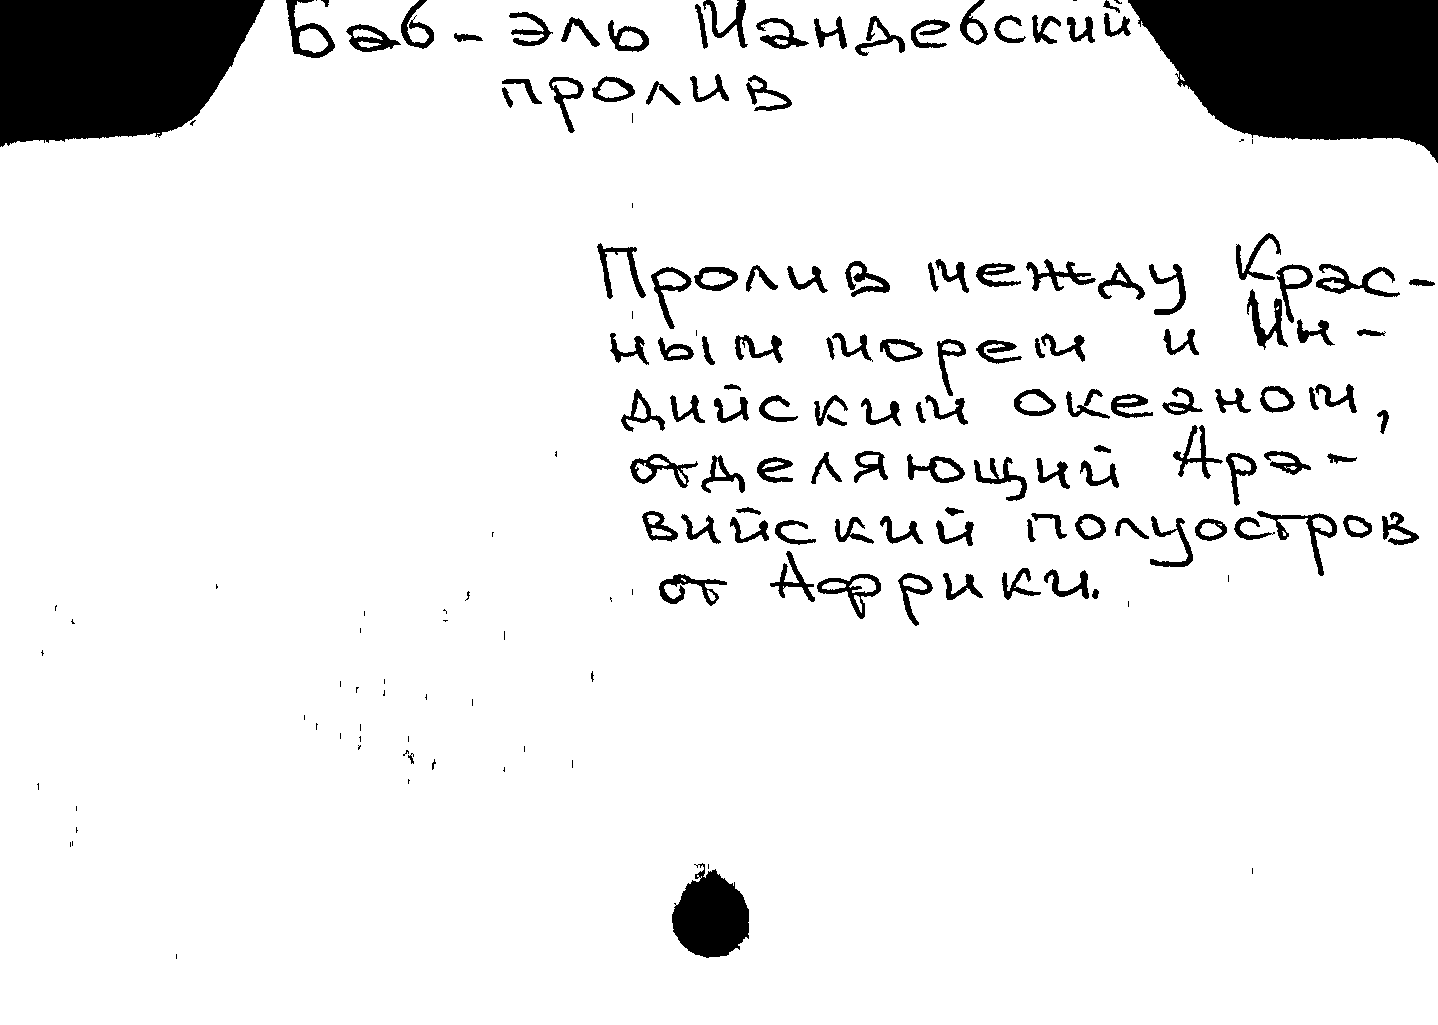 Баб-эль Мандебский
пролив
Пролив между Крас-
ным морем и Ин-
дийским океаном,
отделяющий Ара-
вийский полуостров
от Африки.